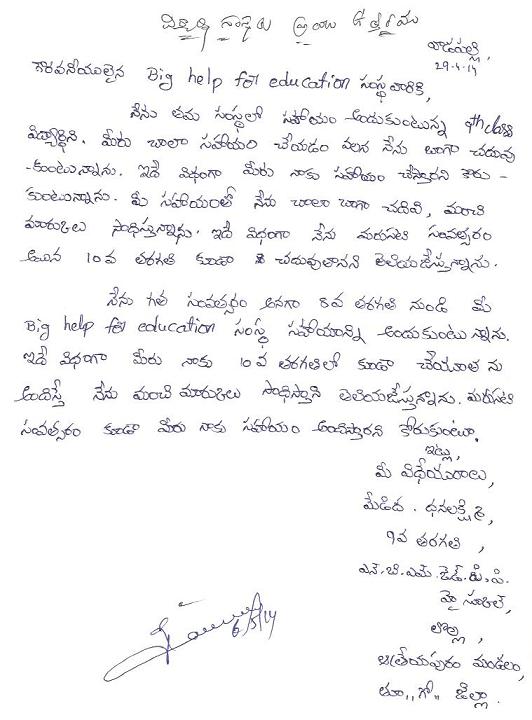 విద్యార్థి సంస్థకు వ్రాయు ఉత్తరము
వాడపల్లి,
29-4-14
గౌరవనీయులైన Big help for education సంస్థ వారికి,
నేను తమ సంస్థలో సహాయం అందుకుంటున్న 9th class
విద్యార్థిని. మీరు చాలా సహాయం చేయడం వలన నేను బాగా చదువు
-కుంటున్నాను. ఇదే విధంగా మీరు నాకు సహాయం చేస్తారని కోరు-
కుంటున్నాను. మీ సహాయంతో నేను చాలా బాగా చదివి, మంచి
మార్కులు సాధిస్తున్నాను. ఇదే విధంగా నేను మరుసటి సంవత్సరం
అయిన 10వ తరగతి కూడా చదువుతానని తెలియజేస్తున్నాను.
నేను గత సంవత్సరం అనగా 8వ తరగతి నుండి మీ
Big help for education సంస్థ సహాయాన్ని అందుకుంటున్నాను.
ఇదే విధంగా మీరు నాకు 10వ తరగతిలో కూడా చేయూతను
అందిస్తే నేను మంచి మార్కులు సాధిస్తాని తెలియజేస్తున్నాను. మరుసటి
సంవత్సరం కూడా మీరు నాకు సహాయం అందిస్తారని కోరుకుంటూ.
ఇట్లు,
మీ విధేయురాలు,
మేడిద. ధనలక్ష్మి,
9వ తరగతి,
ఎన్.బి.ఎమ్.జెడ్.పి.పి.
హైస్కూల్,
లొల్ల,
ఆత్రేయపురం మండలం,
తూ,, గో,, జిల్లా.
6/5/14